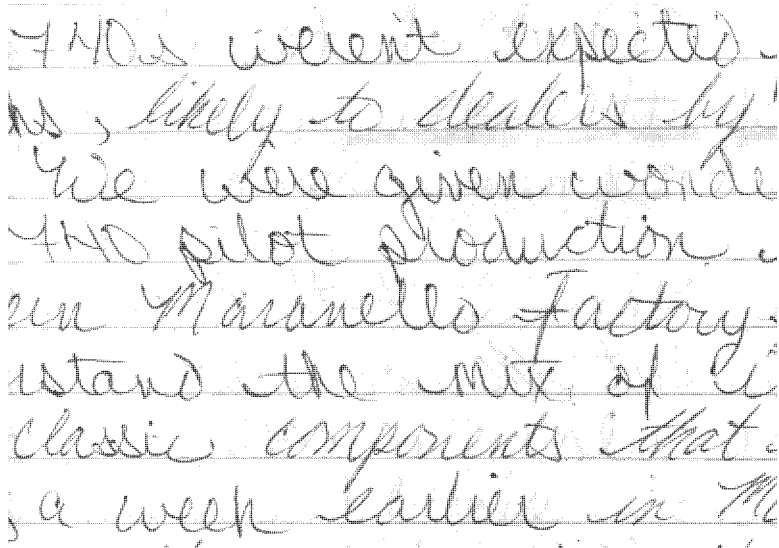 740s weren't expected
ns, likely to dealers by
We were given wonde
740 pilot production
ern Maranello Factory
stand the mix of
classic components that
, a week earlier in M